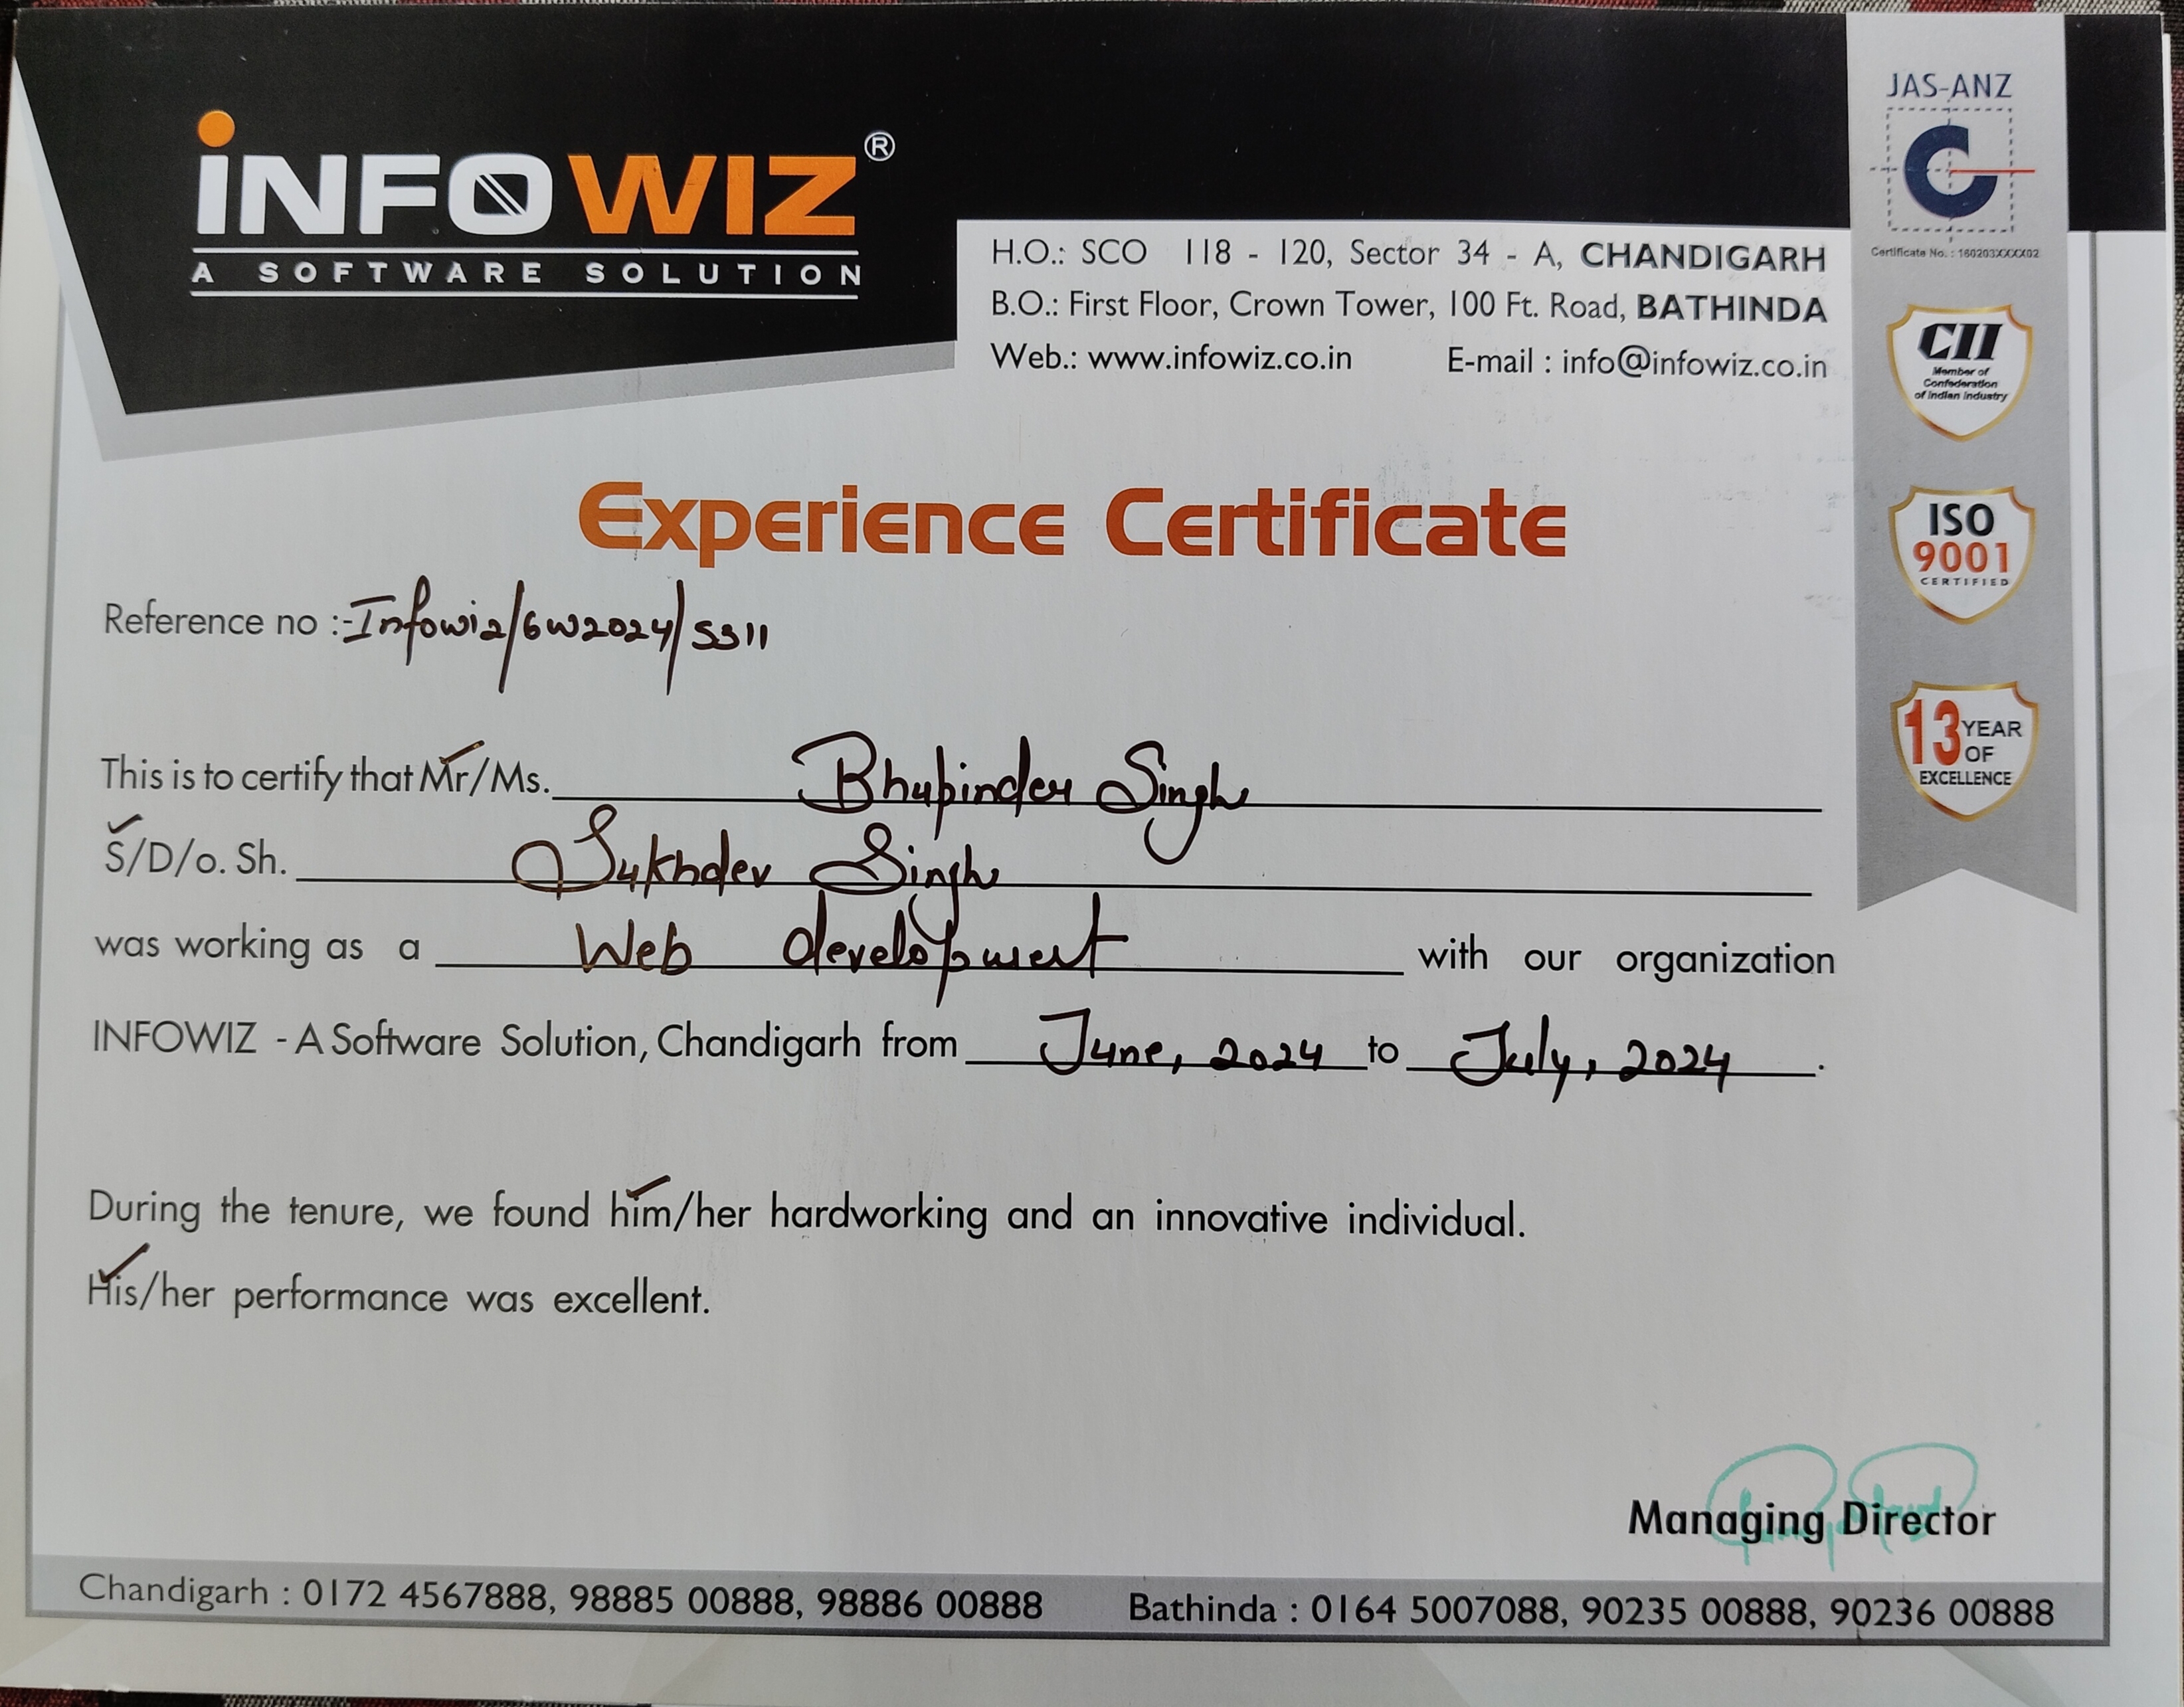 iNFOWIZ®
A SOFTWARE SOLUTION
JAS-ANZ
Certificate No. : 160203XXXX02
H.O.: SCO 118 - 120, Sector 34 - A, CHANDIGARH
B.O.: First Floor, Crown Tower, 100 Ft. Road, BATHINDA
Web.: www.infowiz.co.in E-mail : info@infowiz.co.in
CII
Member of
Confederation
of Indian Industry
ISO
9001
CERTIFIED
13 YEAR
OF
EXCELLENCE
Experience Certificate
Reference no :- Infowiz/6W2024/5311
This is to certify that Mr/Ms. Bhupinder Singh
S/D/o. Sh. Sukhdev Singh
was working as a Web development with our organization
INFOWIZ - A Software Solution, Chandigarh from June, 2024 to July, 2024.
During the tenure, we found him/her hardworking and an innovative individual.
His/her performance was excellent.
Managing Director
Chandigarh : 0172 4567888, 98885 00888, 98886 00888 Bathinda : 0164 5007088, 90235 00888, 90236 00888